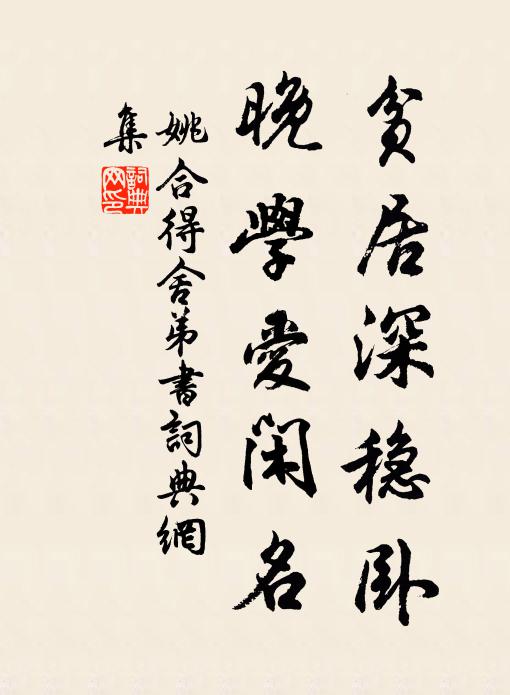 贫居深稳卧
晚学爱闲名
姚合得舍弟書詞典網
集
詞典
网印